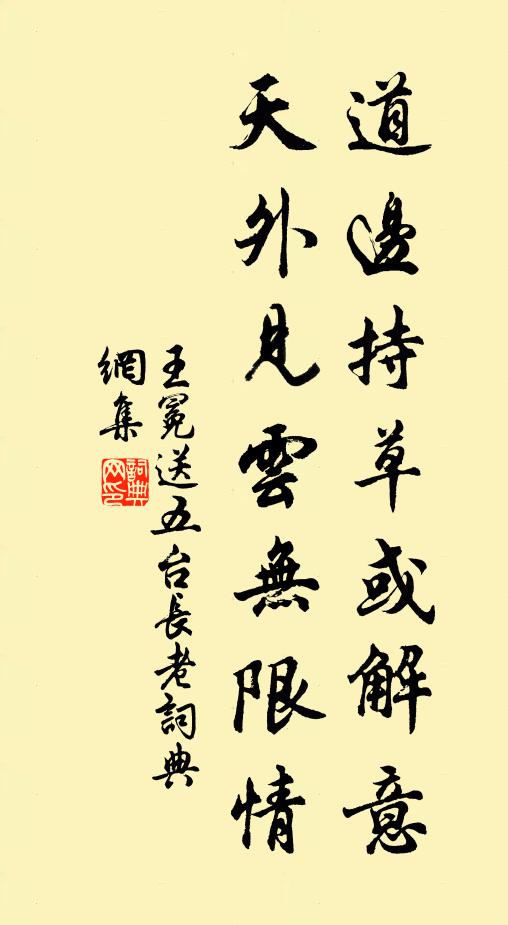 道邊持草或解意
天外見雲無限情
王冕送五台長老詞典
網集
詞典
网印